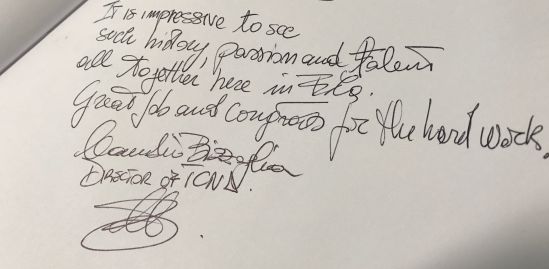 It is impressive to see
such history, passion and talent
all together here in
Great Job and Congrats for the hard work.
Claudio
DIRECTOR OF ICNA